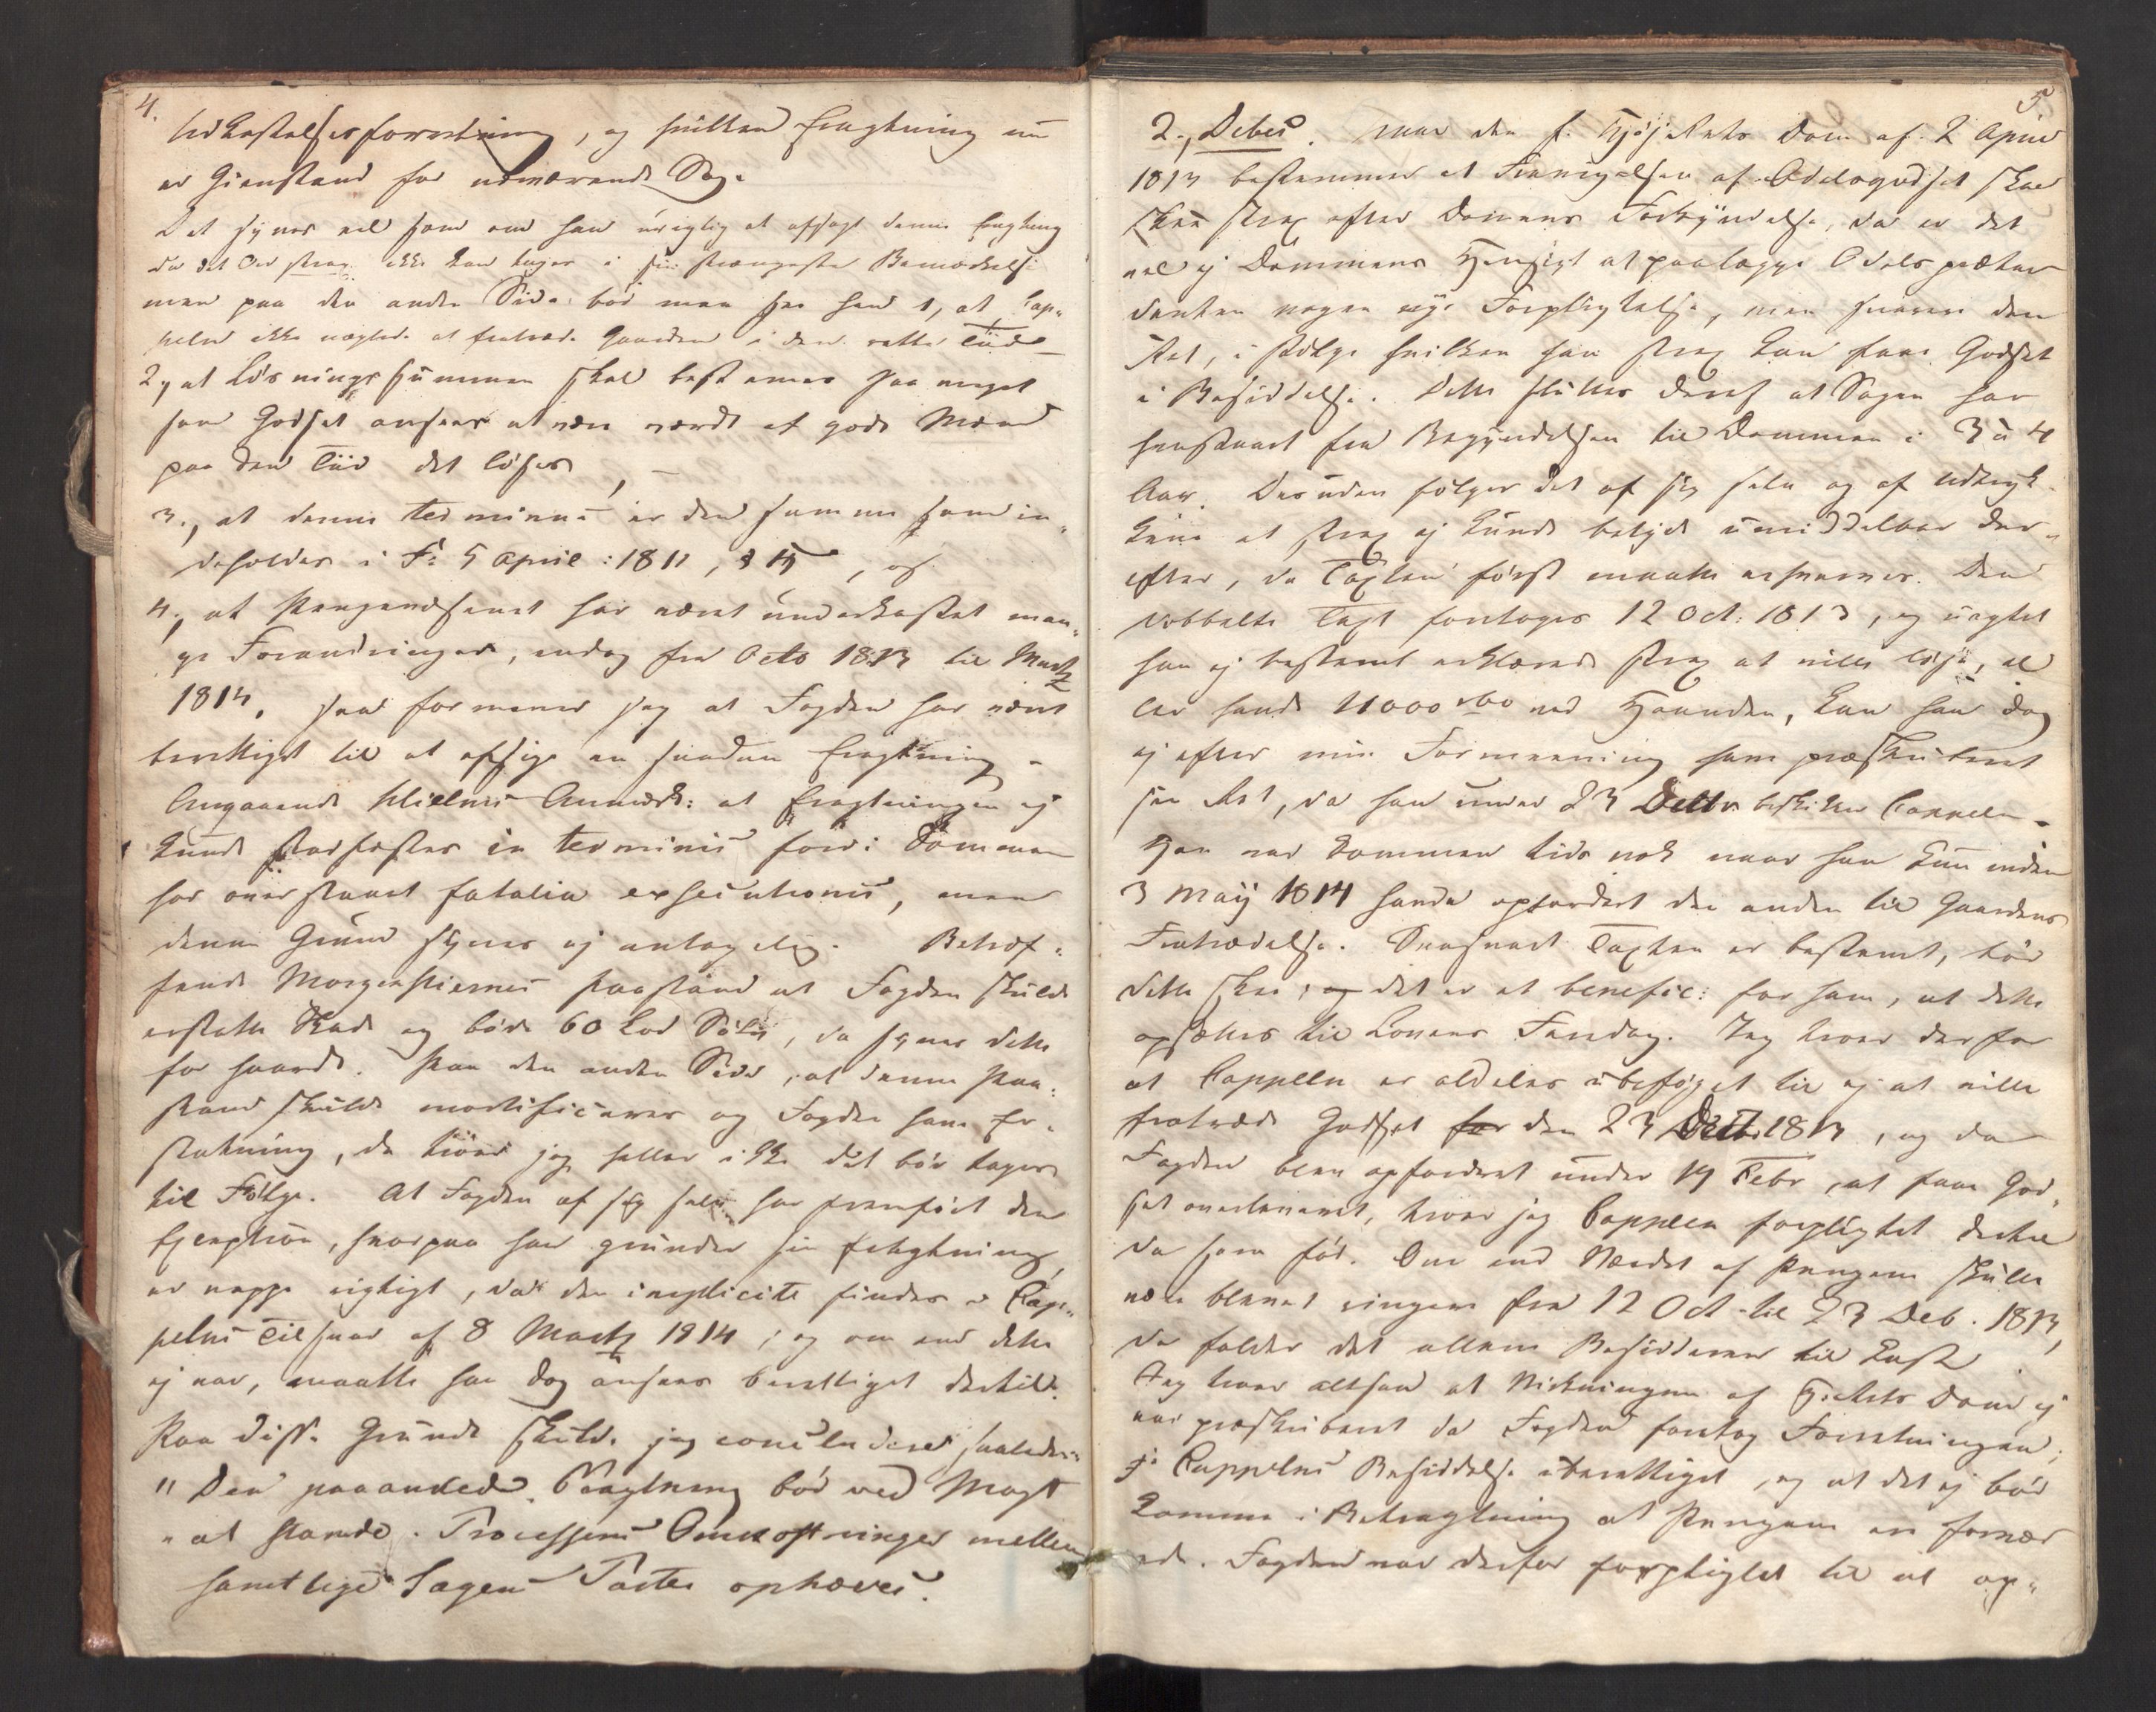 4.
Udkastelsesforretning, og hvilken Eragtning nu
er Gienstand for nærværende Sag.
Det synes vel som om han urigtig at afsagt denne Eragtning
da det Ord strax ikke kan tages i sin strængeste Bemærkelse
men paa den anden Side bør man see hen t, at Cap-
pelen ikke nægtede at fratræde Gaarden i den rette Tiid
2, at Løsningssummen skal bestemmes saa meget
som Godset ansees at være værdt af gode Mænd
paa den Tiid det løses,
3., at denne terminus er den samme som in-
deholdes i Fr 5 April: 1811, § 15, og
4, at Pengevæsenet har været underkastet man-
ge Forandringer, endog fra Octo 1813 til Martz
1814, saa formener jeg at Fogden har været
berettiget til at afsige en saadan Eragtning.
Angaaende Hielms Anmærk: at Eragtningen ej
kunde stadfæstes in terminis fordi Dommen
har overstaaet fatalia exsecutionis, men
denne Grund synes ej antagelig. Betræf-
fende Morgenstiernes Paastand at Fogden skulde
erstatte Skade og bøde 60 Lod Sølv, da synes dette
for haardt. Paa den anden Side, at denne Paa-
stand skulde mortificeres og Fogden have Er-
statning, da troer jeg heller ikke det bør tages
til Følge. At Fogden af sig selv har fremført den
Exception, hvorpaa han grunder sin Eragtning,
er neppe rigtigt, da den implicite findes i Cap-
pelens Tilsvar af 8 Martz 1814; og om end dette
ej var, maatte han dog ansees berettiget dertil.
Paa disse Grunde skulde jeg concludere saaledes:
"Den paaankede Eragtning bør ved Magt
"at stande. Processens Omkostninger mellem
samtlige Sagens Parter ophæves.
5
2., Debes. Naar den f. HøjeRets Dom af 2 April
1813 bestemmer at Fravigelsen af Odelsgodset skal
skee strax efter Domens Forkyndelse, da er det
vel ej Dommens Hensigt at paalægge Odelspræten-
denten nogen nye Forpligtelse, men snarere den
Ret, i Følge hvilken han strax kan faae Godset
i Besiddelse. Dette sluttes deraf at Sagen har
henstaaet fra Begyndelsen til Dommen i 3 à 4
Aar. Desuden følger det af sig selv og af Udtryk-
kene at strax ej kunde betyde umiddelbar der-
efter, da Taxten først maatte erhverves. Den
dobbelte Taxt foretoges 12 Oct: 1813, og uagtet
han ej bestemt erklærede strax at ville løse, el-
ler havde 11000 rbd ved Haanden, kan han dog
ej efter min Formeening have præskriberet
sin Ret, da han under 23 Decbr. beskikker Cappelen.
Han var Dommen tids nok naar han kun inden
3 May 1814 havde opfordret den anden til Gaardens
Fratrædelse. Saasnart Taxten er bestemt, bør
dette skee; og det er et benefic: for ham, at dette
opsættes til Lovens Faredag. Jeg troer derfor
at Cappelen er aldeles ubeføjet til ej at ville
fratræde Godset før den 23 Decbr. 1813, og da
Fogden blev opfordret under 19 Febr, at faae God-
set overleveret, troer jeg Cappelen forpligtet dertil
da som før. Om end Værdet af Pengene skulle
være blevet ringere fra 12 Oct. til 23 Deb. 1813,
da falder det allene Besidderen til Last.
Jeg troer altsaa at Virkningen af H:Rets Dom ej
var præskriberet da Fogden foretog Forretningen;
at Cappelens Besiddelse uberettiget, og at det ej bør
komme i Betragtning at Pengene ere forvær-
rede. Fogden var derfor forpligtet til at op-